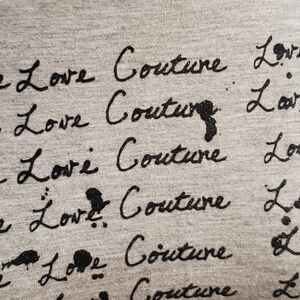 e Love Couture Love
e Love Couture Love
e Love Couture Love
e Love Couture Lo
e Love Couture Lo
Love Couture